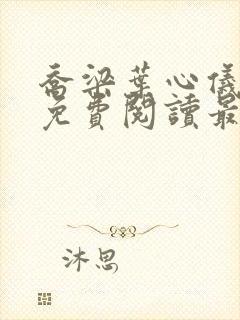 喬梁葉心儀
免費閱讀最
沐思